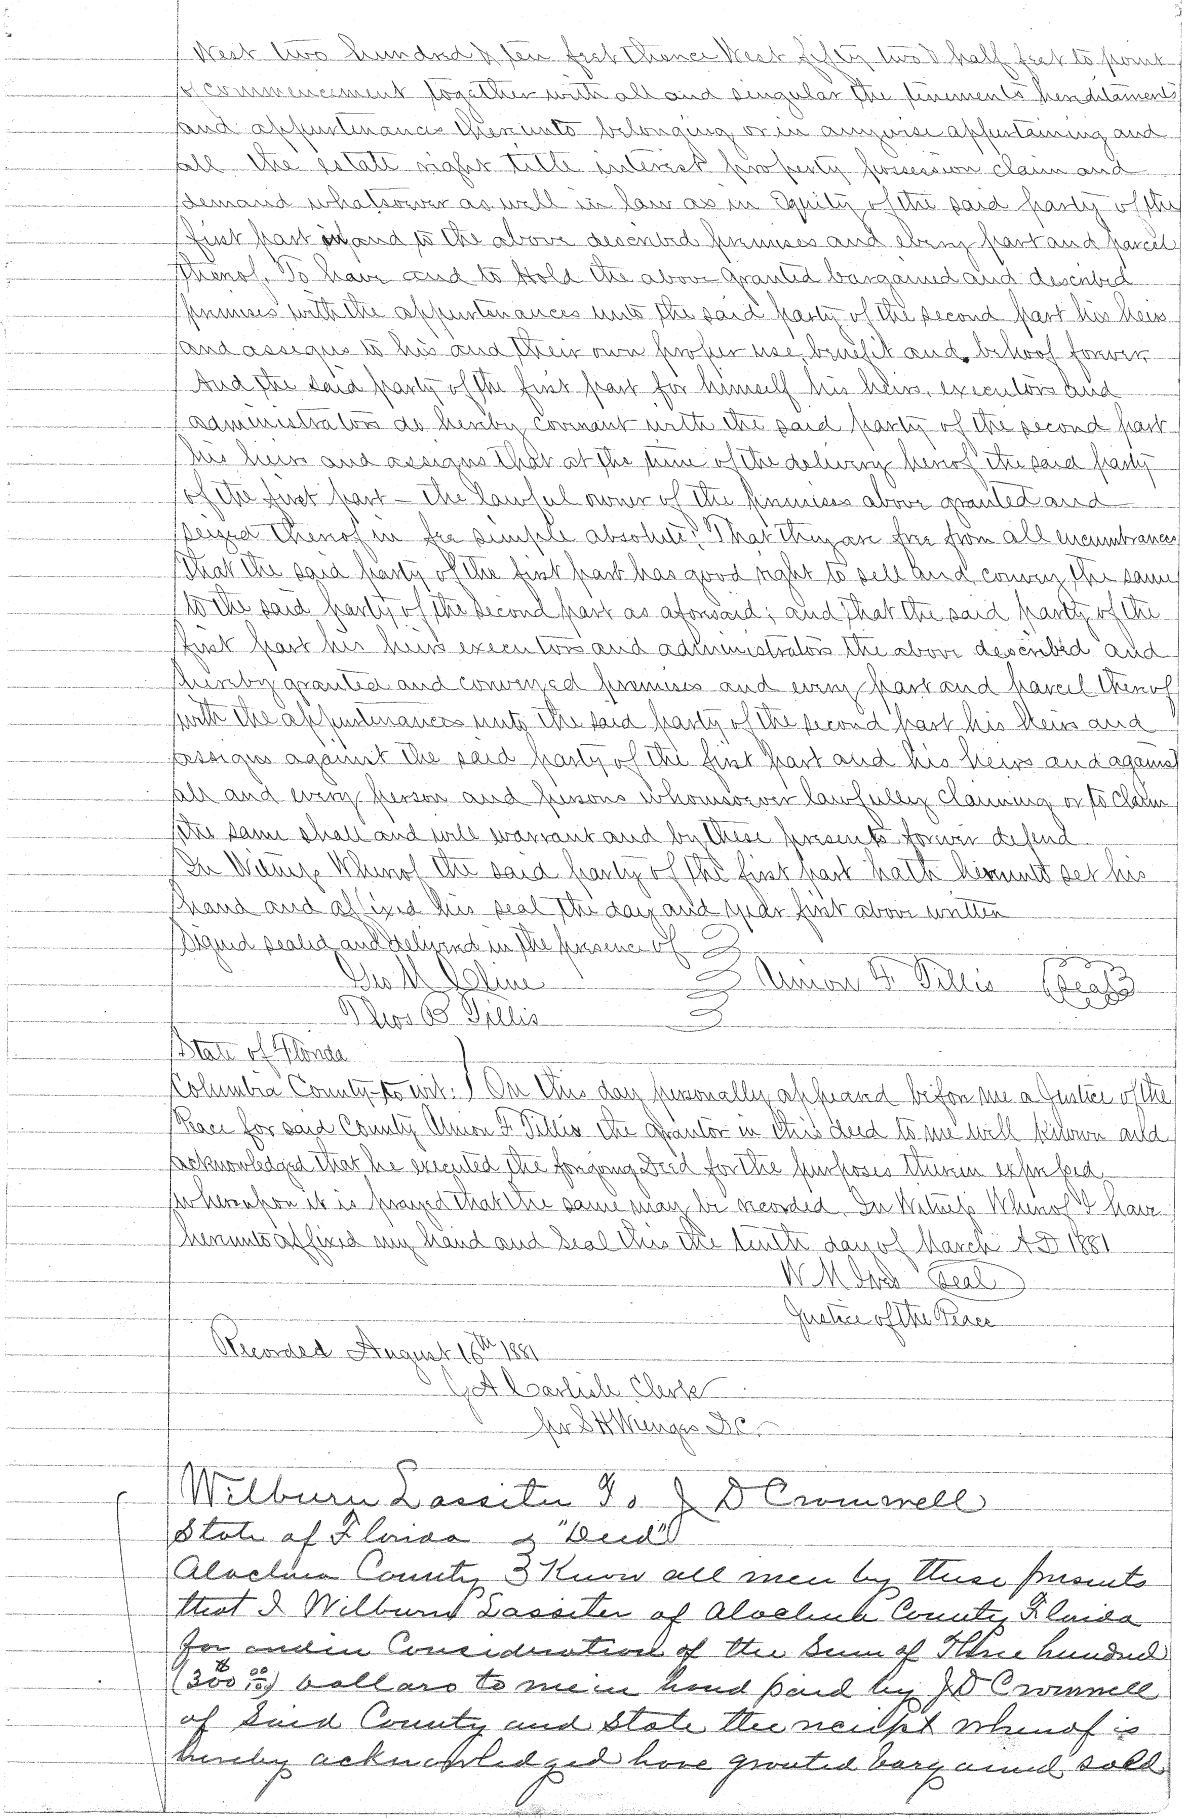 West two hundred & ten feet thence West fifty two & half feet to point
of commencement together with all and singular the tinements hereditaments
and appurtenances thereunto belonging or in anywise appertaining and
all the estate right title interest property possession claim and
demand whatsoever as well in law as in Equity of the said party of the
first part in and to the above described premises and every part and parcel
thereof. To have and to Hold the above granted bargained and described
premises with the appurtenances unto the said party of the second part his heirs
and assigns to his and their own proper use, benefit and behoof forever
And the said party of the first part for himself his heirs, executors and
administrators do hereby covenant with the said party of the second part
his heirs and assigns that at the time of the delivery hereof the said party
of the first part – the lawful owner of the premises above granted and
seized thereof in fee simple absolute; That they are free from all encumbrances
that the said party of the first part has good right to sell and convey the same
to the said party of the second part as aforesaid; and that the said party of the
first part his heirs executors and administrators the above described and
hereby granted and conveyed premises and every part and parcel thereof
with the appurtenances unto the said party of the second part his heirs and
assigns against the said party of the first part and his heirs and against
all and every person and persons whomsoever lawfully claiming or to claim
the same shall and will warrant and by these presents forever defend
In Witness Whereof the said party of the first part hath hereunto set his
hand and affixed his seal the day and year first above written
Signed sealed and delivered in the presence of
Geo M Cline Union F Tillis (Seal)
Thos B Tillis
State of Florida
Columbia County to wit: } On this day personally appeared before me a Justice of the
Peace for said County Union F Tillis the grantor in this deed to me well known and
acknowledged that he executed the foregoing Deed for the purposes therein expressed
whereupon it is prayed that the same may be recorded. In Witness Whereof I have
hereunto affixed my hand and seal this the tenth day of March A.D 1881
W M Ives (Seal)
Justice of the Peace
Recorded August 16th 1881
J A Carlisle Clerk
per S H Wienges D.C.
Wilburn Lassiter To J D Cromwell
State of Florida } "Deed"
Alachua County } Know all men by these presents
that I Wilburn Lassiter of Alachua County Florida
for and in Consideration of the Sum of Three hundred
($300 00/100) dollars to me in hand paid by J D Cromwell
of Said County and State the reciept whereof is
hereby acknowledged have granted bargained sold